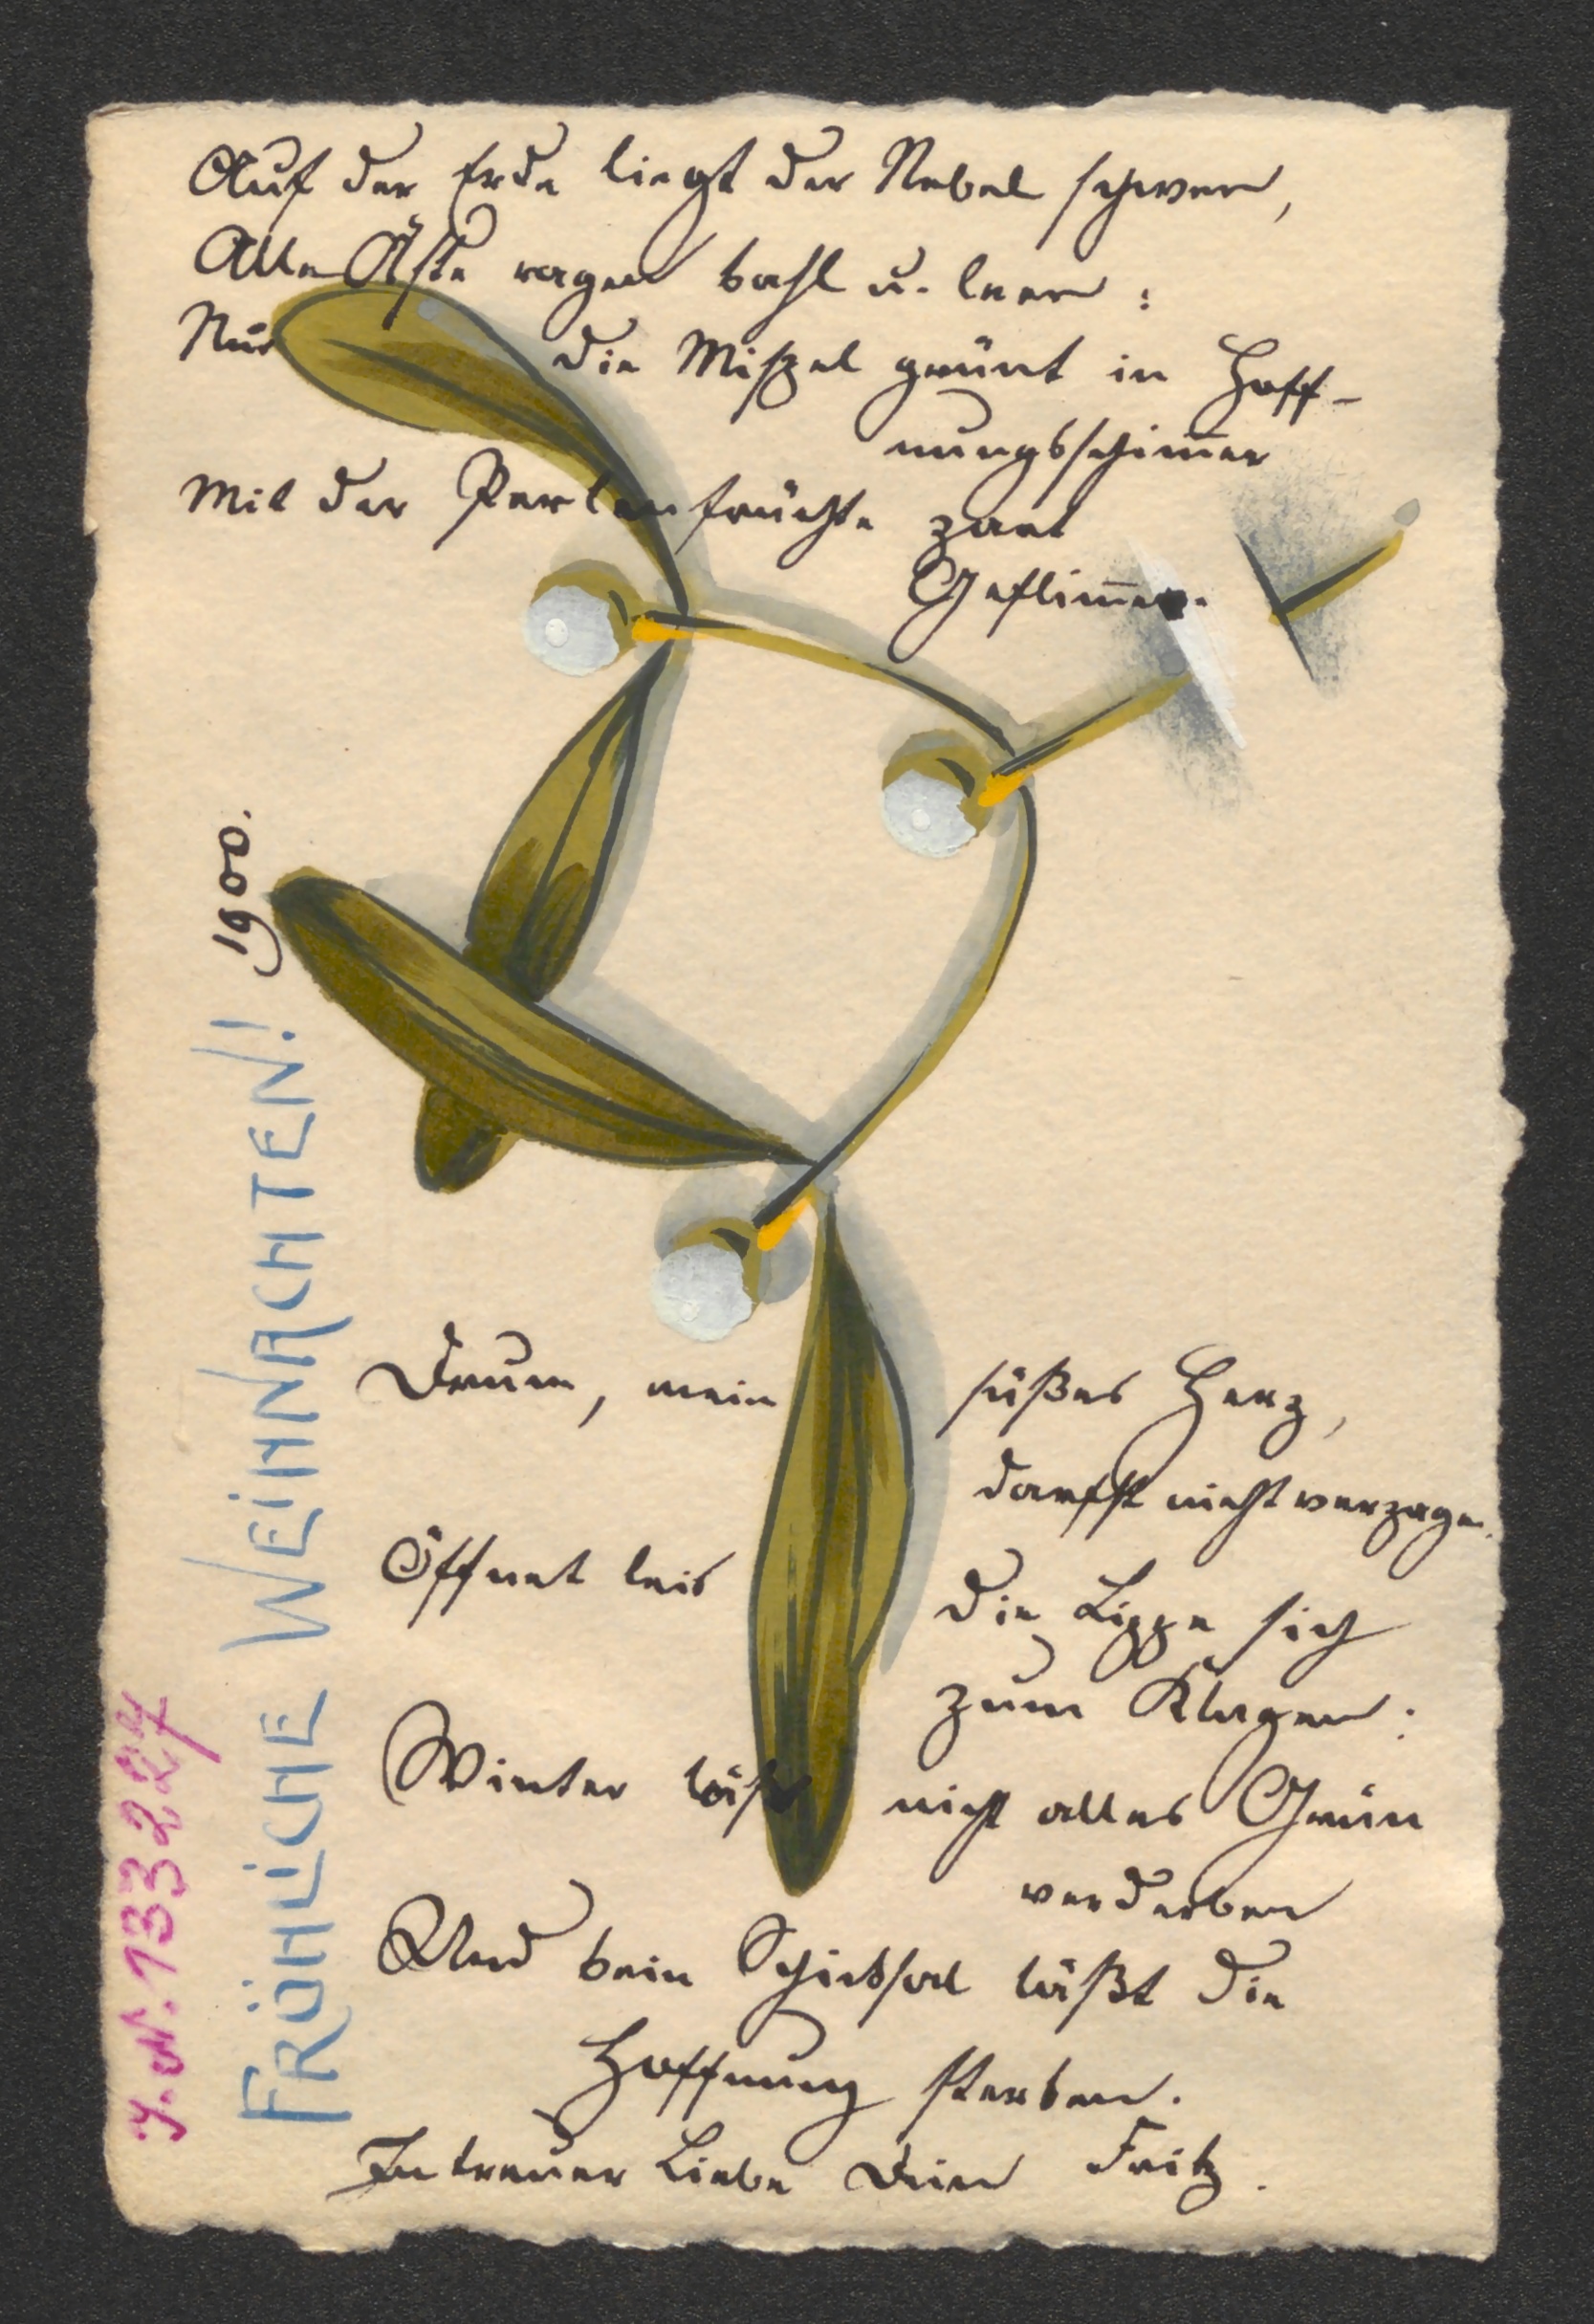 Auf der Erde liegt der Nebel schwer,
Alle Äste ragen kahl u. leer:
Nur die Mispel grünt in Hoff-
nungsschim̅er
Mit der Perlenfrüchte zart
Geflim̅er.
Drum, mein süßes Herz,
darfst nicht verzagen.
Öffnet leis die Lippe sich
zum Klagen:
Winter läßt nicht alles Grün
verderben
Und kein Schicksal läßt die
Hoffnung sterben.
In treuer Liebe Dein Fritz.
FRÖHLICHE WEIHNACHTEN! 1900.
J.N. 133227